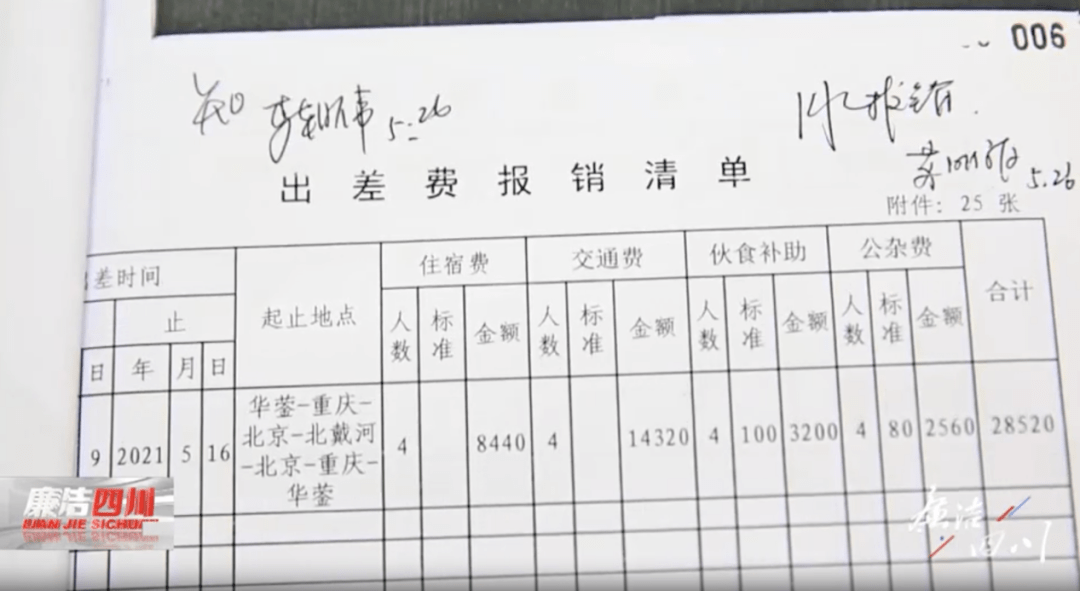 006
5.26
报销
5.26
出差费报销清单
附件: 25 张
差时间 起止地点 住宿费 交通费 伙食补助 公杂费 合计
止 人数 标准 金额 人数 标准 金额 人数 标准 金额 人数 标准 金额
日 年 月 日
9 2021 5 16 华蓥-重庆- 4 8440 4 14320 4 100 3200 4 80 2560 28520
北京-北戴河
-北京-重庆-
华蓥
廉洁四川
LIAN JIE SICHUAN
廉洁四川